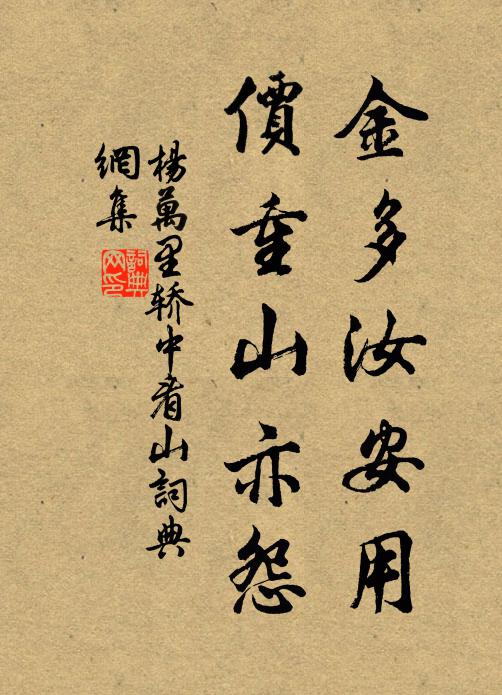 金多汝安用
價重山亦怨
楊萬里轿中看山詞典
網集
詞典
网印